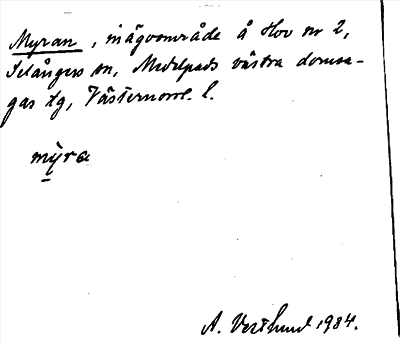 Myran, inägoområde å Hov nr 2,
Selångers sn, Medelpads västra domsa-
gas tg, Västernorrl. l.
myra
A. Vestlund 1984.